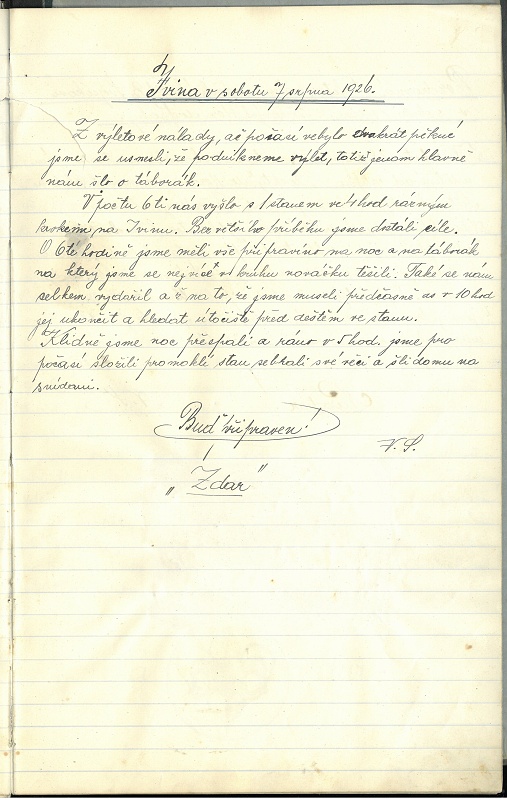 Ivina v sobotu 7. srpna 1926.
Z výletové nálady, ač počasí nebylo dvakrát pěkné
jsme se usnesli, že podnikneme výlet, totiž jenom hlavně
nám šlo o táborák.
V počtu 6ti nás vyšlo s 1 stanem ve 4 hod rázným
krokem na Ivinu. Bez většího příběhu jsme dostáli cíle.
O 6té hodině jsme měli vše připravíno na noc a na táborák
na který jsme se nejvíce v kruhu nováčku těšili. Také se nám
celkem vydařil až na to, že jsme museli předčasně as v 10 hod
jej ukončit a hledat útočiště před deštěm ve stanu.
Klidně jsme noc přespali a ráno v 5 hod. jsme pro
počasí složili promoklí stan sebrali své věci a šli domu na
snídani.
Buď připraven!
V. S.
„Zdar"